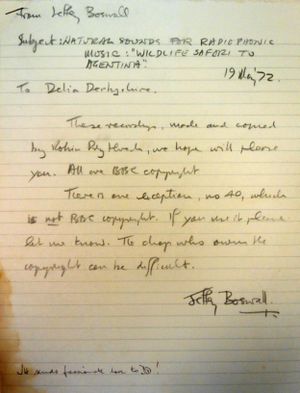 From Jeffery Boswall
Subject: NATURAL SOUNDS FOR RADIOPHONIC
MUSIC: "WILDLIFE SAFARI TO
AGENTINA".
19 May '72
To Delia Derbyshire.
These recordings, made and copied
by Robin, we hope will please
you. All are BBC copyright
There is one exception, no 40, which
is not BBC copyright. If you use it please
let me know. The chap who owns the
copyright can be difficult.
Jeffery Boswall.
sends love to